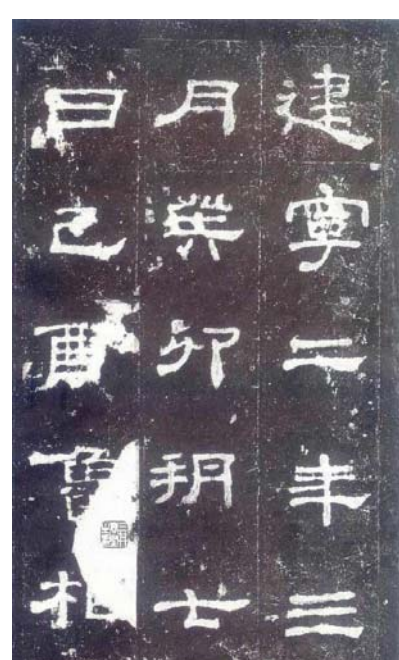 建寧二年三
月癸卯朔七
日己酉魯相